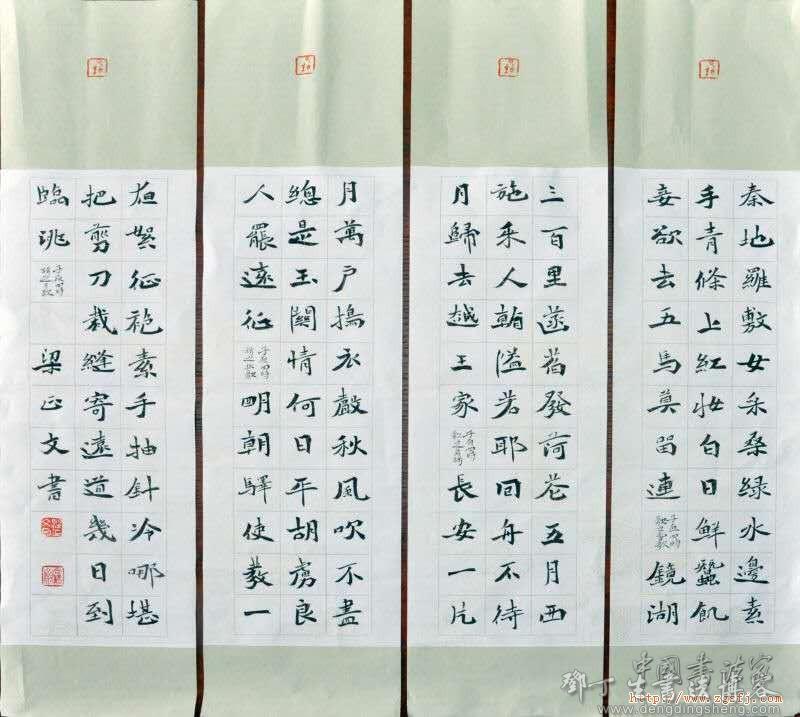 秦地羅敷女采桑緑水邊素
手青條上紅妝白日鮮蠶飢
妾欲去五馬莫留連 子夜四時歌之春歌 鏡湖
三百里菡萏發荷花五月西
施采人看隘若耶回舟不待
月歸去越王家 子夜四時歌之夏歌 長安一片
月萬戶搗衣聲秋風吹不盡
總是玉關情何日平胡虜良
人罷遠征 子夜四時歌之秋歌 明朝驛使發一
夜絮征袍素手抽針冷哪堪
把剪刀裁縫寄遠道幾日到
臨洮 子夜四時歌之冬歌 梁正文書
中國書法家
鄧丁生書法博客
http://www.zgsfj.com
www.dengdingsheng.com